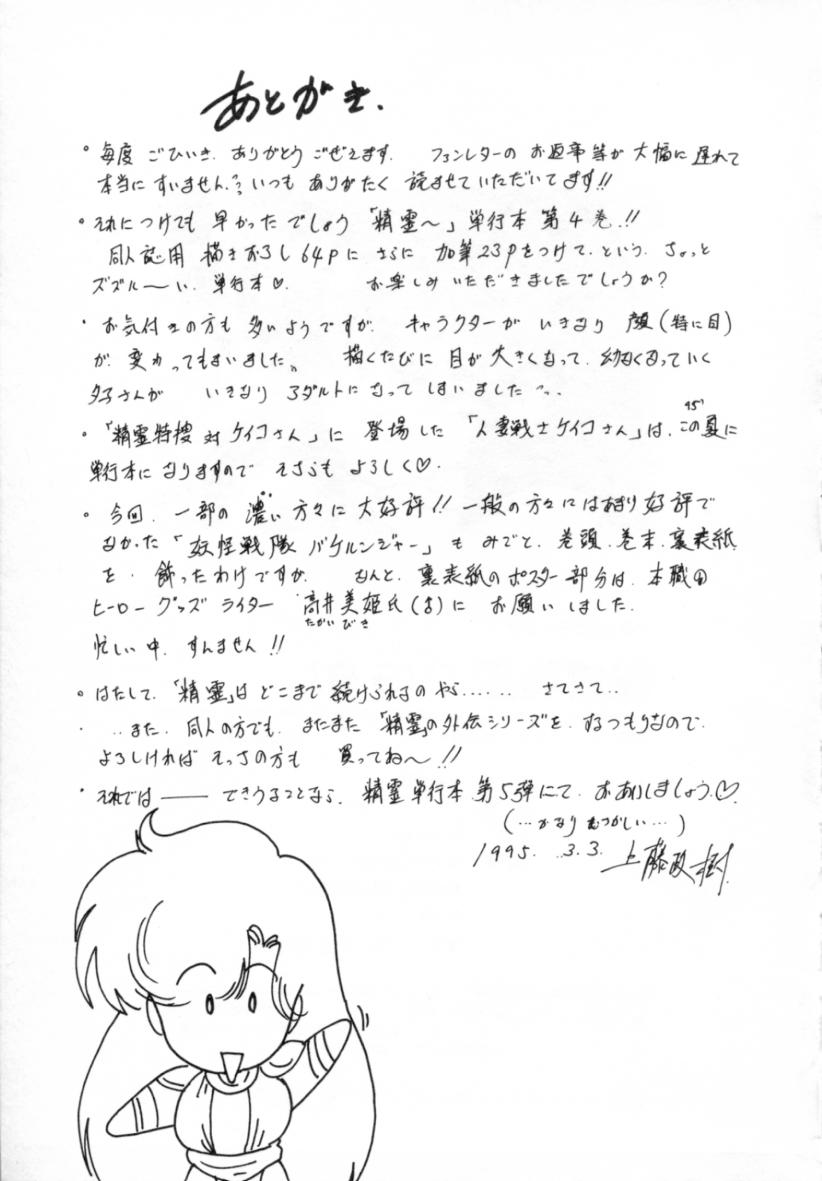 あとがき.
・毎度 ごひいき、ありがとう ごぜえます. ファンレターの お返事等が 大幅に 遅れて
本当に すいません。いつも ありがたく 読ませていただいてます!!
・それにつけても 早かったでしょう「精霊〜」単行本 第4巻!!
同人誌用 描きおろし64Pに さらに 加筆23Pをつけて、という、ちょっと
ズズル〜い、単行本♡. お楽しみいただきましたでしょうか?
・お気付きの方も 多いようですが、キャラクターが いきなり 顔(特に目)
が、変わってしまいました。描くたびに 目が 大きくなって、幼くなっていく
夕子さんが いきなり アダルトに なって しまいました…
・「精霊特捜 対 ケイコさん」に 登場した「人妻戦士ケイコさん」は、この夏に
95'
単行本に なりますので そちらも よろしく♡.
・今回、一部の 濃い 方々に 大好評!! 一般の方々には あまり 好評で
なかった「妖怪戦隊 バケルンジャー」も みごと、巻頭、巻末、裏表紙
を、飾ったわけですが、なんと、裏表紙の ポスター部分は、本職の
ヒーローグッズ ライター 高井美姫氏(♀)に お願いしました.
たかい びき
忙しい中、すんません!!
・はたして、「精霊」は どこまで 続けられるのやら…… さてさて..
・..また、同人の方でも、またまた「精霊」の外伝シリーズを、するつもりなので、
よろしければ そっちの方も 買ってね〜!!
・それでは―― できうることなら、精霊単行本 第5弾にて、お会いしましょう♡.
(…かなり むつかしい…)
1995. 3.3. 上藤政樹